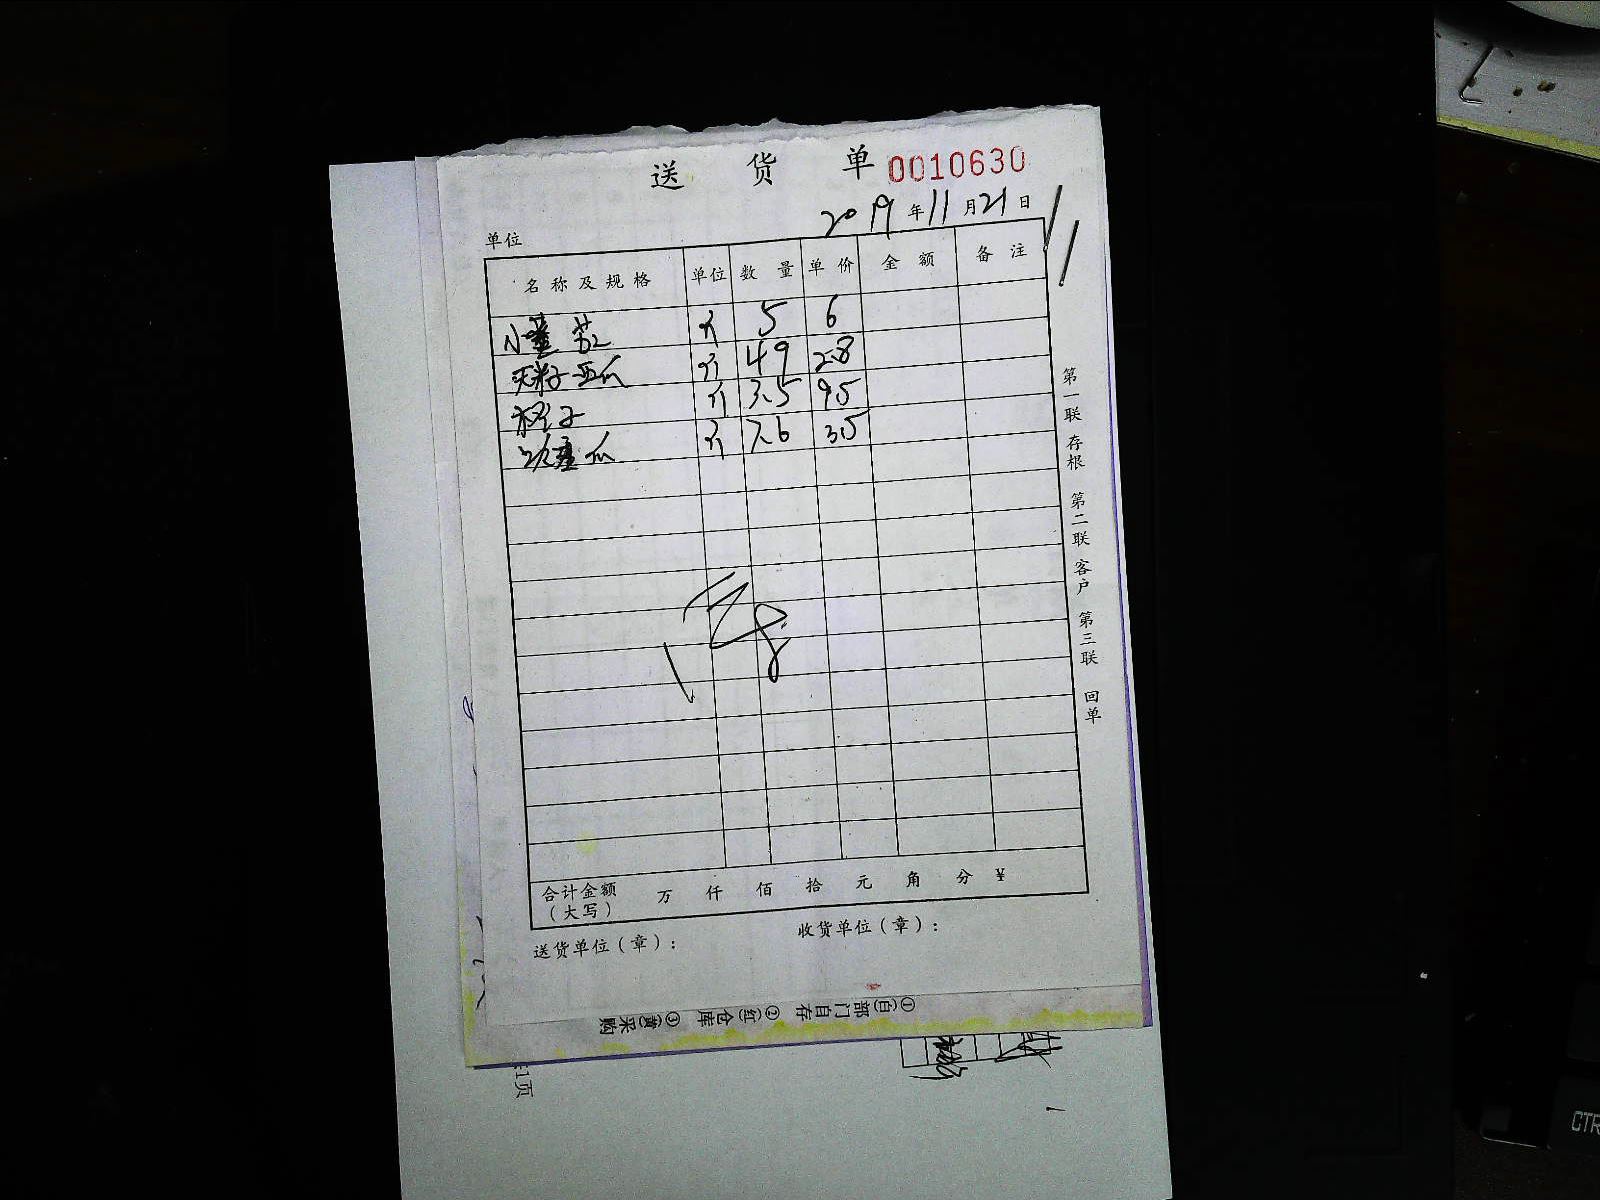 送 货 单 0010630
2019 年 11 月 21 日
单位
名称及规格 单位 数量 单价 金额 备注
斤 5 6
无籽西瓜 斤 49 2.8
橙子 斤 3.5 95
瓜 斤 7.6 3.5
合计金额(大写) 万 仟 佰 拾 元 角 分 ¥
送货单位(章): 收货单位(章):
第一联 存根 第二联 客户 第三联 回单
①(白)部门自存 ②(红)仓库 ③(黄)采购
1页
CTR